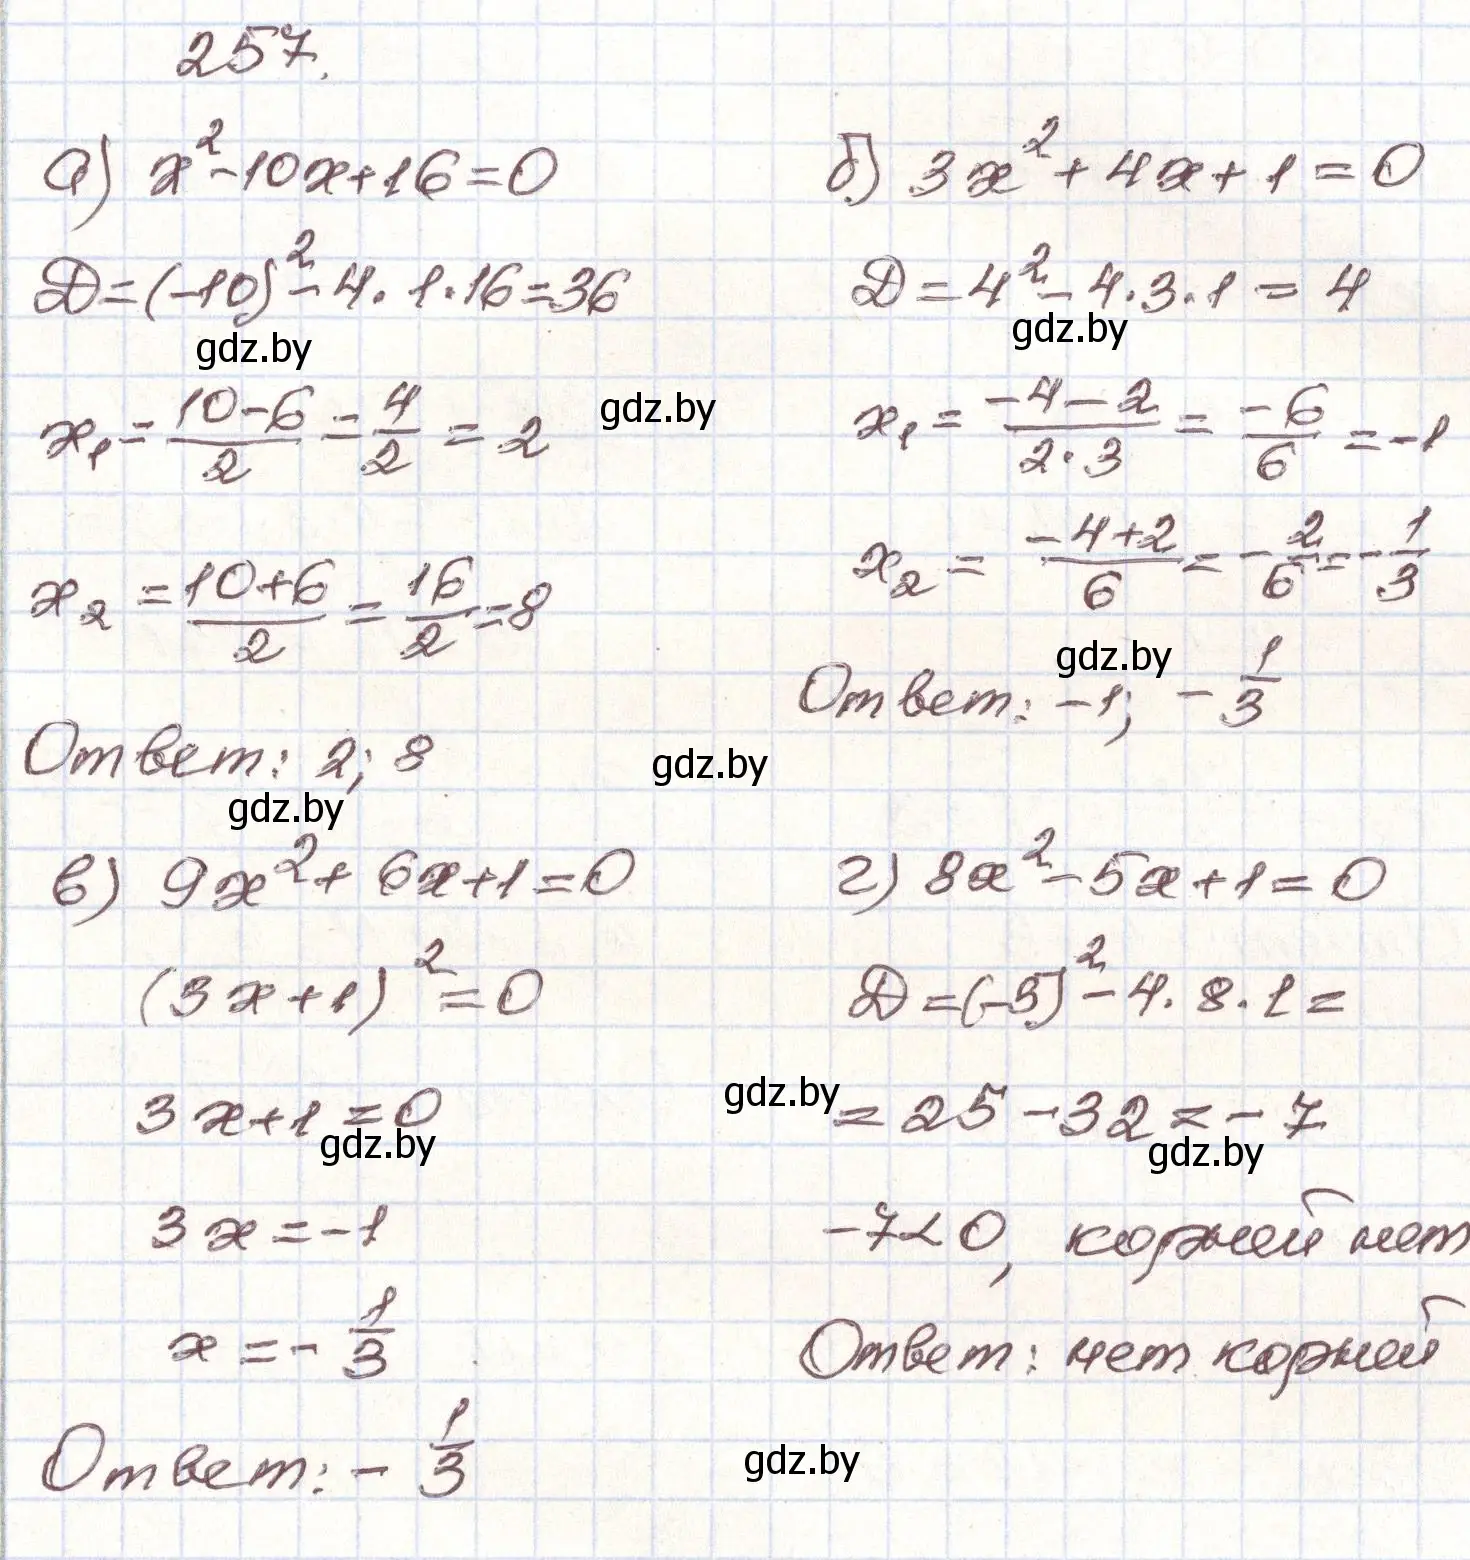 257.
а) x² - 10x + 16 = 0
D = (-10)² - 4 · 1 · 16 = 36
gdz.by
x₁ = (10 - 6)/2 = 4/2 = 2
gdz.by
x₂ = (10 + 6)/2 = 16/2 = 8
Ответ: 2; 8
gdz.by
gdz.by
б) 3x² + 4x + 1 = 0
D = 4² - 4 · 3 · 1 = 4
gdz.by
x₁ = (-4 - 2)/(2 · 3) = -6/6 = -1
x₂ = (-4 + 2)/6 = -2/6 = -1/3
gdz.by
Ответ: -1; -1/3
в) 9x² + 6x + 1 = 0
(3x + 1)² = 0
3x + 1 = 0
gdz.by
3x = -1
x = -1/3
Ответ: -1/3
г) 8x² - 5x + 1 = 0
D = (-5)² - 4 · 8 · 1 =
gdz.by
= 25 - 32 = -7
gdz.by
-7 < 0, корней нет
Ответ: нет корней
gdz.by